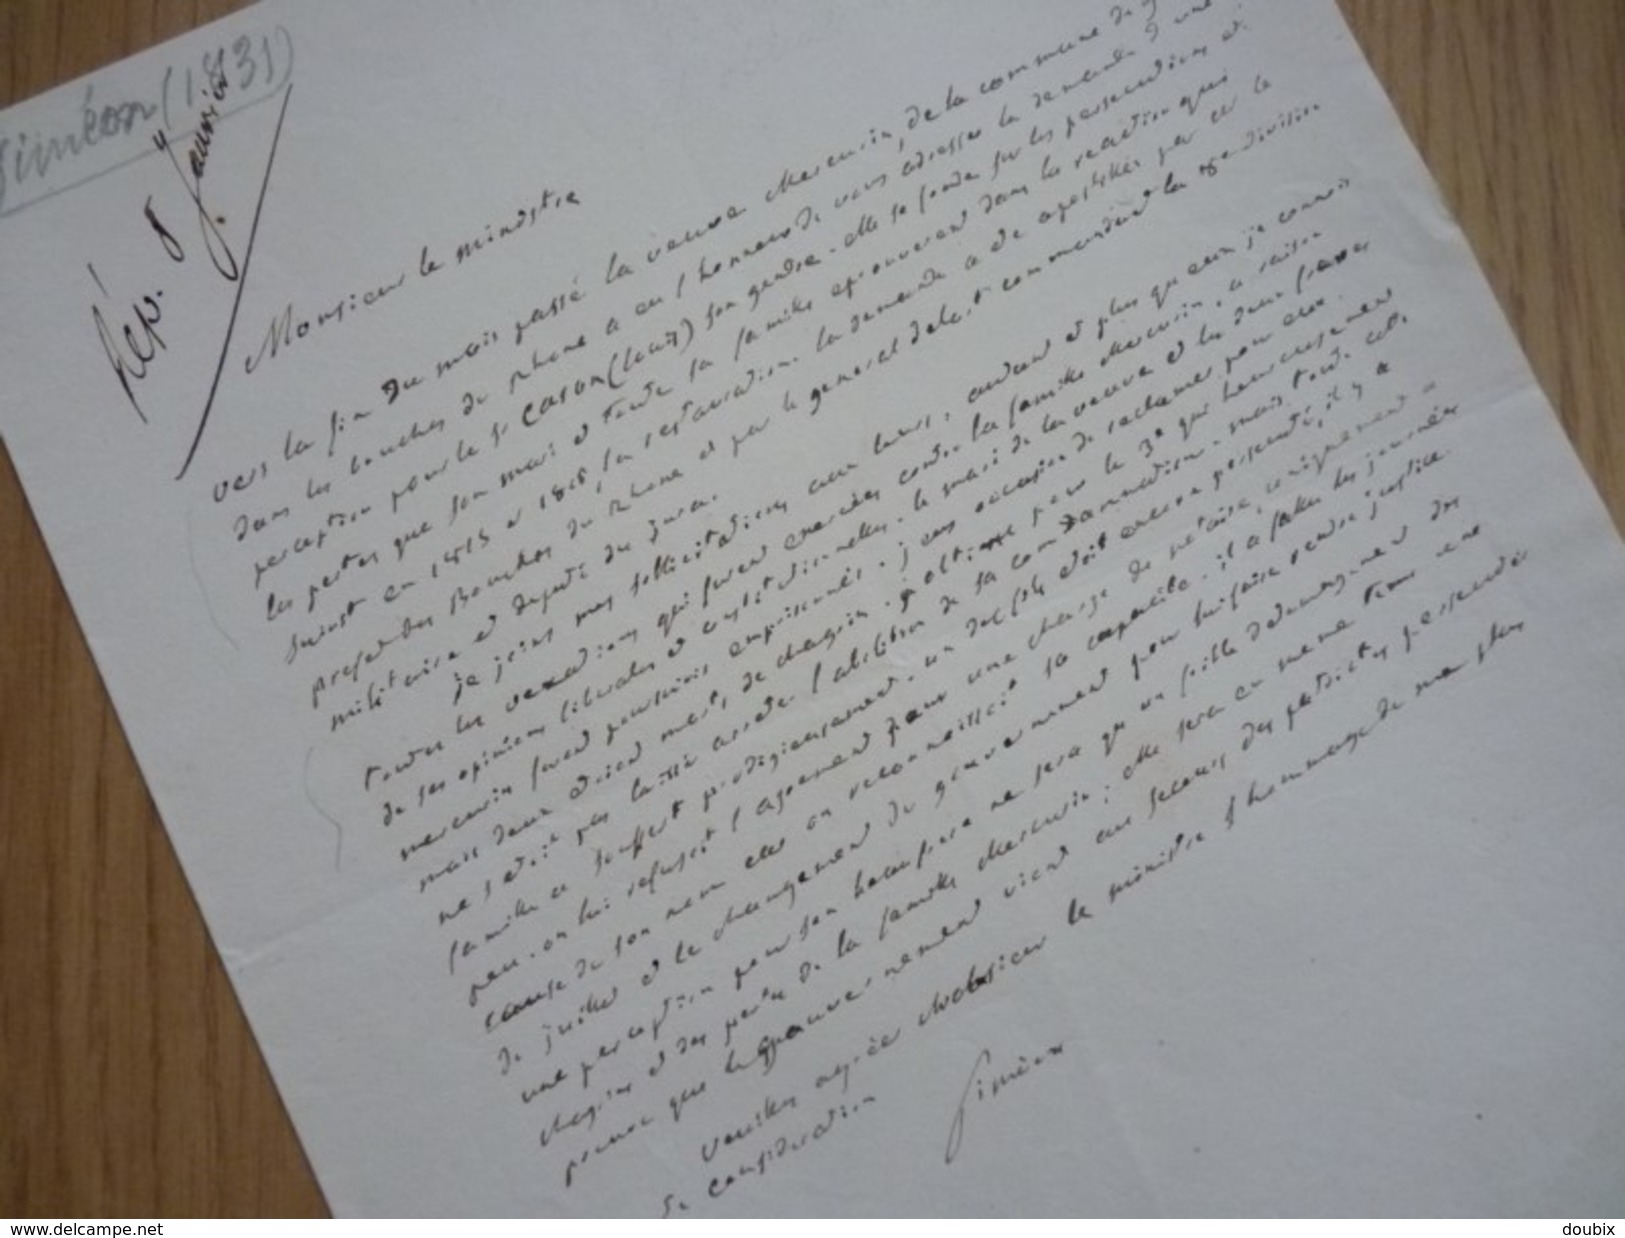 Siméon (1831)
Rép. 8 Janvier
Monsieur le ministre
vers la fin du mois passé la veuve Mercurin de la commune de
dans les bouches du rhone a eu l'honneur de vous adresser la demande d'une
perception pour le Sr Caron (louis) son gendre. elle se fonde sur les persecutions et
les pertes que son mari et toute sa famille eprouverent dans la reaction qui
suivit en 1815 et 1816, la restauration. la demande a ete apostillée par Mr le
prefet des Bouches du Rhone et par le general delort commandant la division
militaire et deputé du jura.
je joins mes sollicitations aux leurs, autant et plus qu'eux je connois
toutes les vexations qui furent exercées contre la famille Mercurin, a raison
de ses opinions liberales et constitutionnelles. le mari de la veuve et les deux freres
mercurin furent poursuivis emprisonnés. j'eus occasion de reclamer pour eux.
mais deux etoient morts de chagrin. j'obtins pour le 3e qui heureusement
ne s'etoit pas laissé abattre l'abolition de sa condamnation. mais toute cette
famille a souffert prodigieusement. un des fils etoit encore persecuté, il y a
peu. on lui refusoit l'agrement pour une charge de notaire, uniquement a
cause de son nom car on reconnaissoit sa capacité. il a fallu les journées
de juillet et le changement du gouvernement pour lui faire rendre justice.
une perception pour son beaufrere ne sera qu'un foible dedommagement des
chagrins et des pertes de la famille Mercurin; elle sera en meme tems une
preuve que le gouvernement vient au secours des patriotes persecutés
veuillez agréer Monsieur le ministre l'hommage de ma plus
consideration
Siméon
www.delcampe.net
doubix